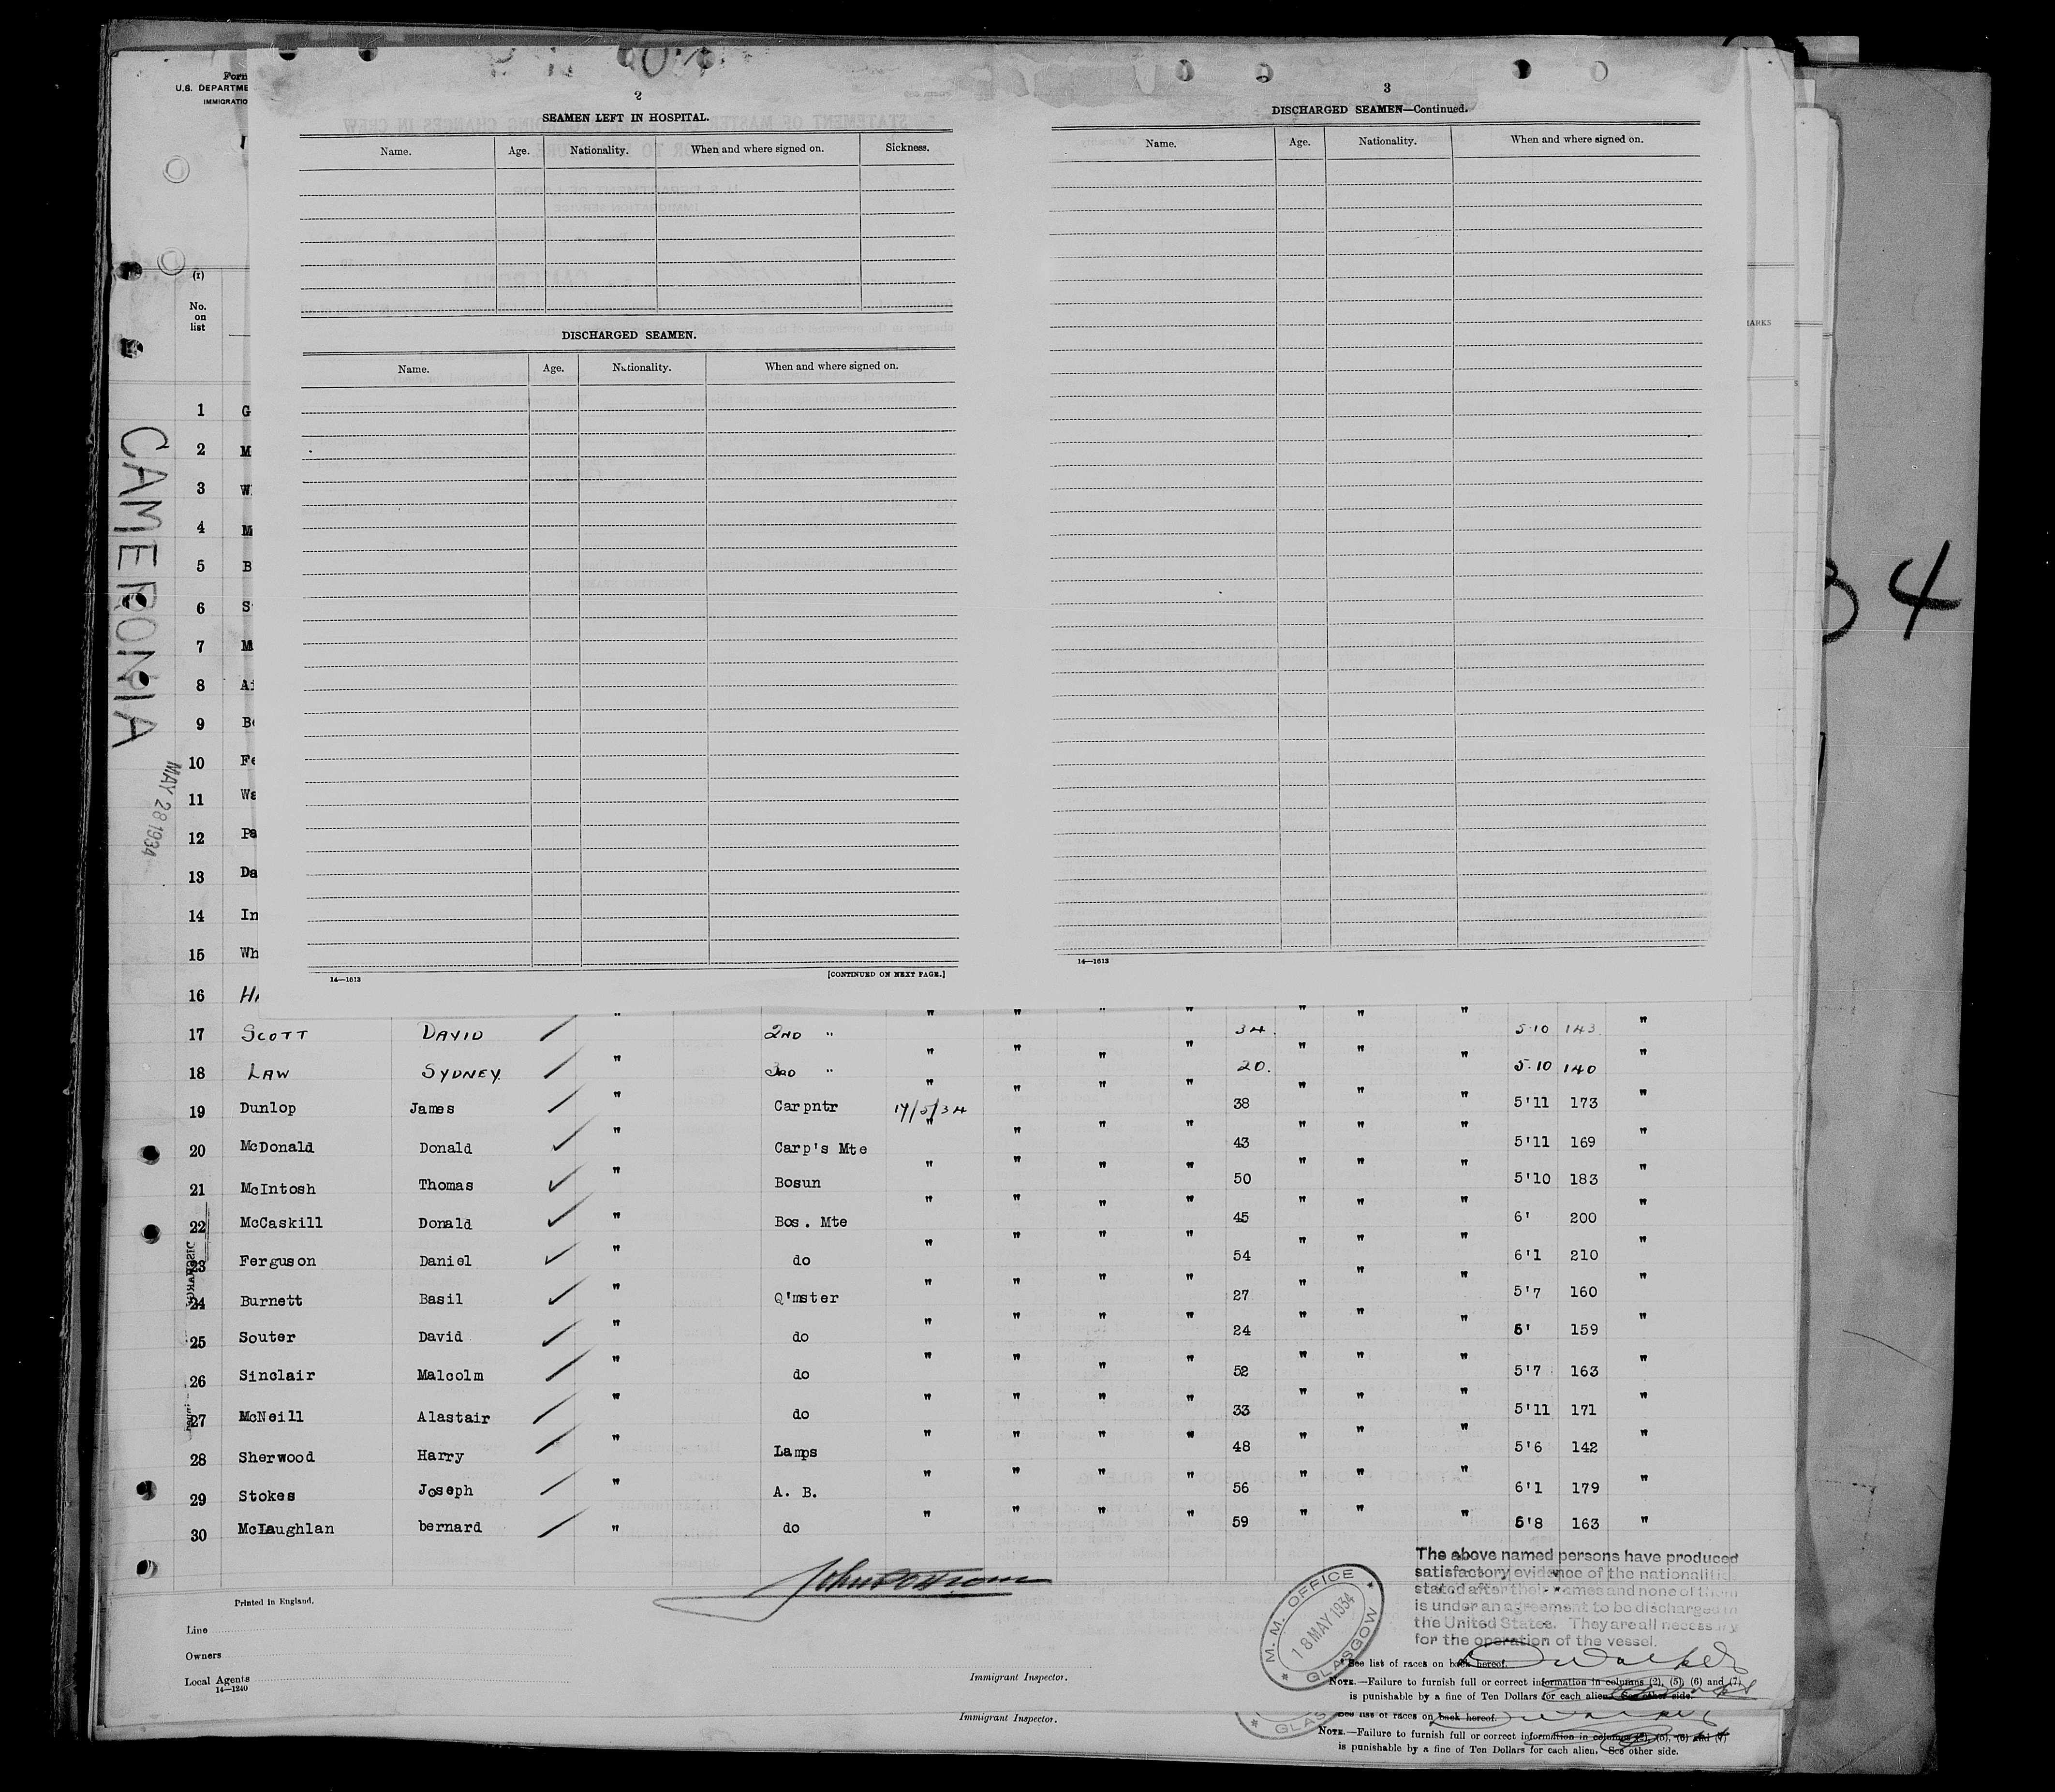 Form
U.S. DEPARTME
IMMIGRATIO
(1)
No.
on
list
2
SEAMEN LEFT IN HOSPITAL.
Name. Age. Nationality. When and where signed on. Sickness.
DISCHARGED SEAMEN.
Name. Age. Nationality. When and where signed on.
14—1613
[CONTINUED ON NEXT PAGE.]
3
DISCHARGED SEAMEN—Continued.
Name. Age. Nationality. When and where signed on.
14—1613
ARKS
34
CAMERONIA
MAY 28 1934
1 G
2 M
3 W
4 M
5 B
6 S
7 M
8 Ai
9 Be
10 Fe
11 Wa
12 Pa
13 Da
14 In
15 Wh
16 HA
17 SCOTT DAVID " 2ND " " " " " 34. " " " 5.10 143 "
18 LAW SYDNEY " 3RD " " " " " 20. " " " 5.10 140 "
19 Dunlop James " Carpntr 17/5/34 " " " 38 " " " 5'11 173 "
20 McDonald Donald " Carp's Mte " " " " 43 " " " 5'11 169 "
21 McIntosh Thomas " Bosun " " " " 50 " " " 5'10 183 "
22 McCaskill Donald " Bos. Mte " " " " 45 " " " 6' 200 "
23 Ferguson Daniel " do " " " " 54 " " " 6'1 210 "
24 Burnett Basil " Q'mster " " " " 27 " " " 5'7 160 "
25 Souter David " do " " " " 24 " " " 6' 159 "
26 Sinclair Malcolm " do " " " " 52 " " " 5'7 163 "
27 McNeill Alastair " do " " " " 33 " " " 5'11 171 "
28 Sherwood Harry " Lamps " " " " 48 " " " 5'6 142 "
29 Stokes Joseph " A. B. " " " " 56 " " " 6'1 179 "
30 McLaughlan bernard " do " " " " 59 " " " 5'8 163 "
Printed in England.
Line
Owners
Local Agents
14—1240
Immigrant Inspector.
Immigrant Inspector.
M. M. OFFICE
18 MAY 1934
GLASGOW
The above named persons have produced
satisfactory evidence of the nationalities
stated after their names and none of them
is under an agreement to be discharged in
the United States. They are all necessary
for the operation of the vessel.
* See list of races on back hereof.
NOTE.—Failure to furnish full or correct information in columns (2), (5), (6) and (7)
is punishable by a fine of Ten Dollars for each alien. See other side.
See list of races on back hereof.
NOTE.—Failure to furnish full or correct information in columns (2), (5), (6) and (7)
is punishable by a fine of Ten Dollars for each alien. See other side.